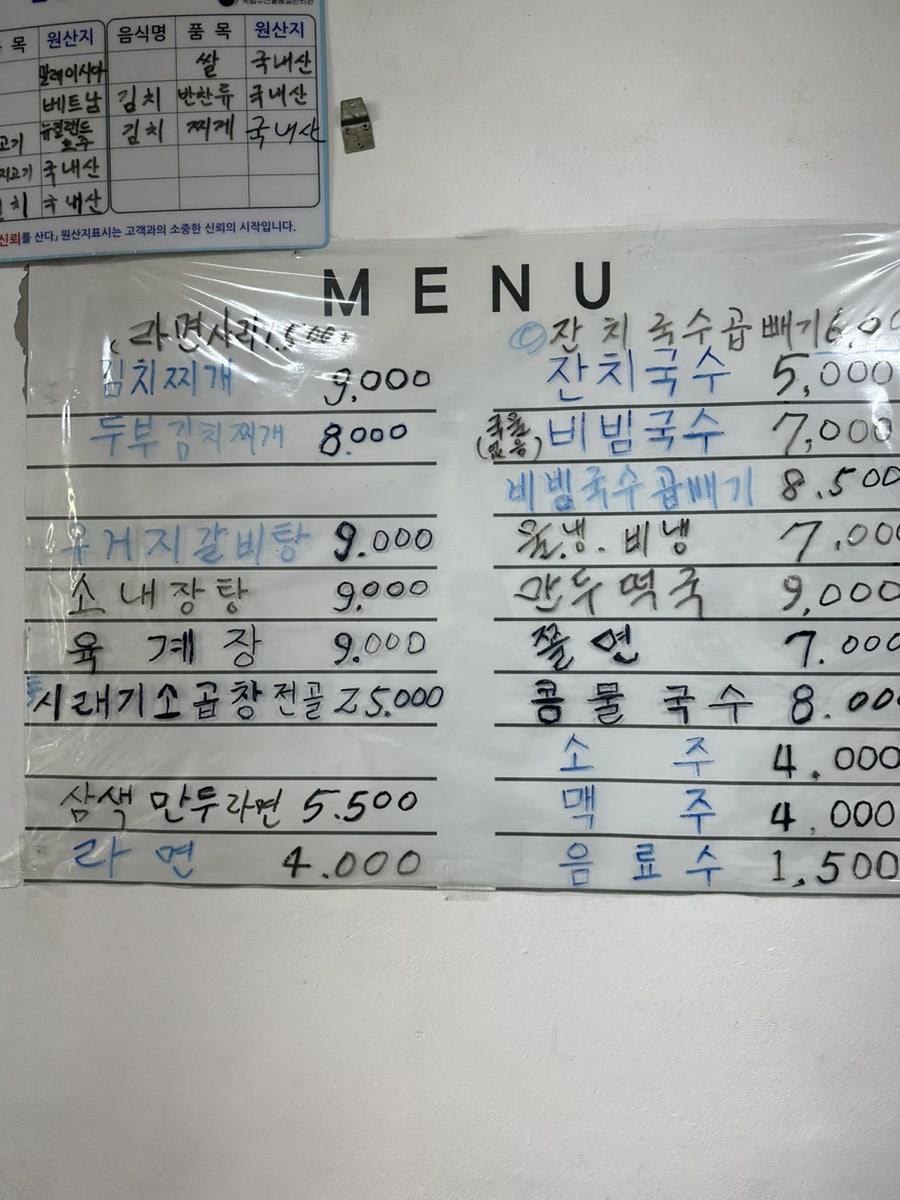 목 원산지 음식명 품 목 원산지
말레이시아 쌀 국내산
베트남 김치 반찬류 국내산
고기 뉴질랜드 호주 김치 찌게 국내산
지고기 국내산
치 국내산
신뢰를 산다」 원산지표시는 고객과의 소중한 신뢰의 시작입니다.
MENU
(라면사리 1,500)
김치찌개 9,000
두부김치찌개 8.000
우거지갈비탕 9.000
소내장탕 9.000
육계장 9.000
시래기소곱창전골 25.000
삼색만두라면 5.500
라면 4.000
잔치국수곱빼기 6,00
잔치국수 5,000
(국물없음) 비빔국수 7,000
비빔국수곱빼기 8.500
물냉.비냉 7,000
만두떡국 9,000
쫄면 7.000
콩물국수 8.000
소주 4.000
맥주 4,000
음료수 1,500